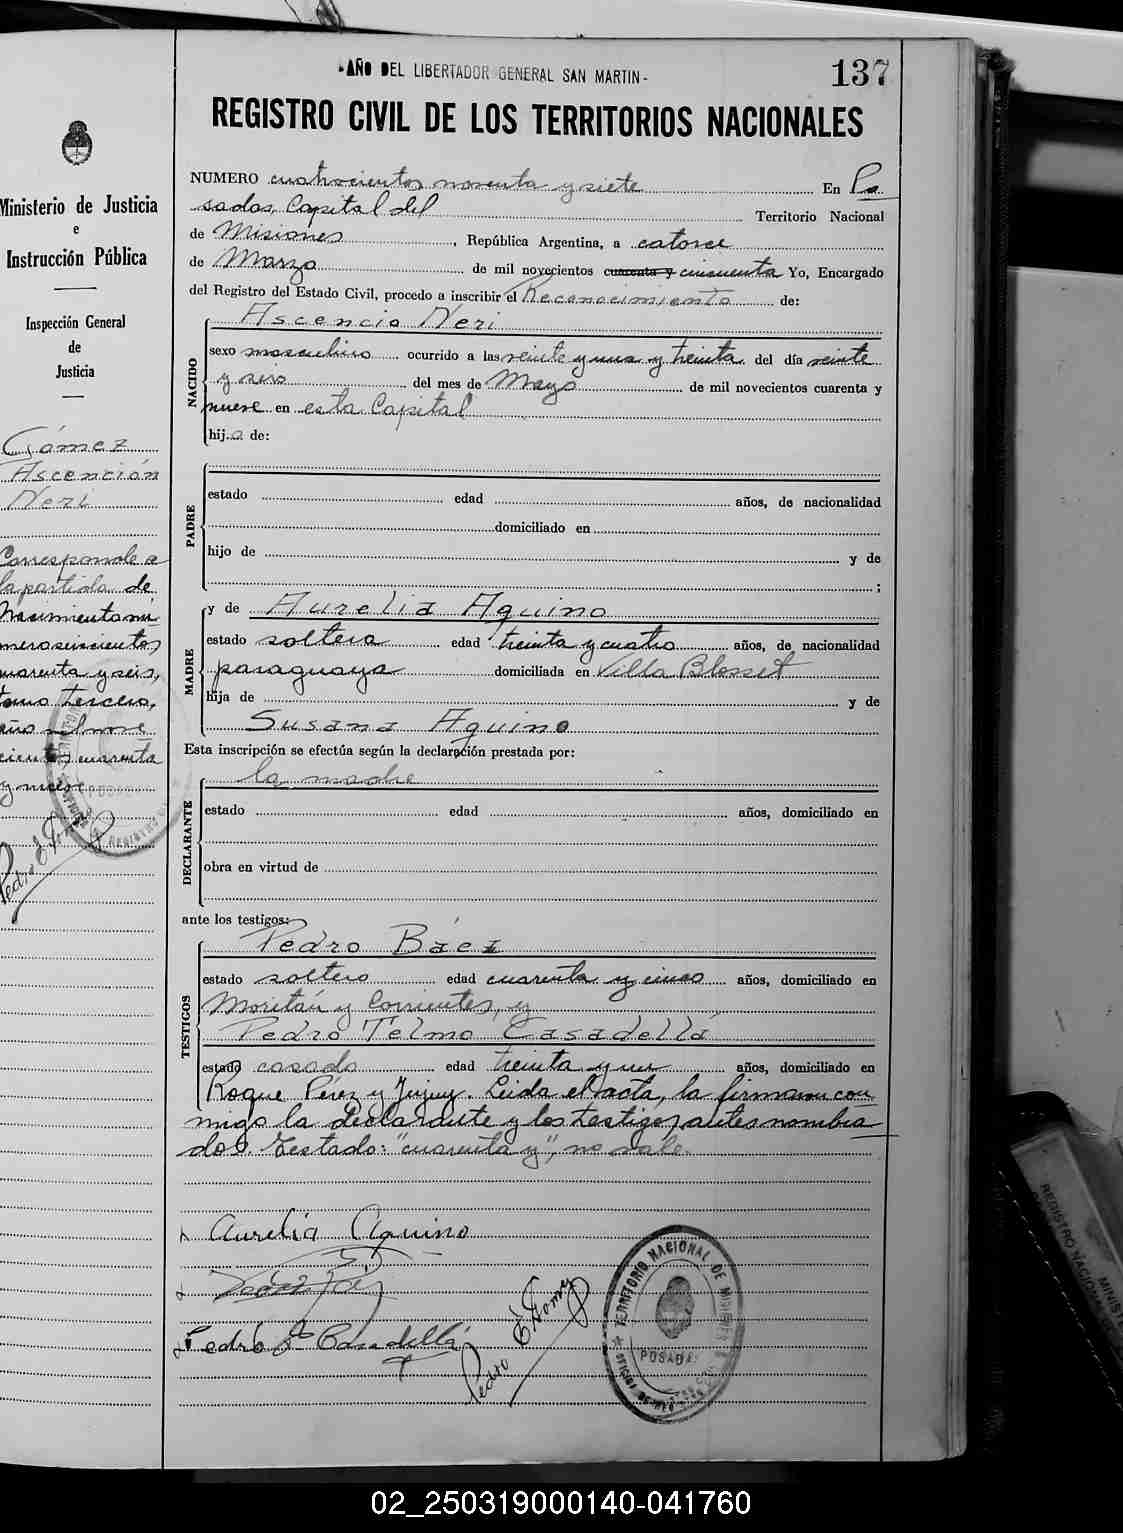 -AÑO DEL LIBERTADOR GENERAL SAN MARTIN-
137
REGISTRO CIVIL DE LOS TERRITORIOS NACIONALES
Ministerio de Justicia
e
Instrucción Pública
Inspección General
de
Justicia
Gómez
Ascención
Neri
Corresponde a
la partida de
Nacimiento nú
mero seiscientos
cuarenta y seis,
tomo tercero,
año mil nove
cientos cuarenta
y nueve
NUMERO cuatrocientos noventa y siete En Po
sadas, Capital del Territorio Nacional
de Misiones, República Argentina, a catorce
de Marzo de mil novecientos cuarenta y cincuenta Yo, Encargado
del Registro del Estado Civil, procedo a inscribir el Reconocimiento de:
NACIDO
Ascencio Neri
sexo masculino ocurrido a las veinte y una y treinta del día veinte
y seis del mes de Mayo de mil novecientos cuarenta y
nueve en esta Capital
hijo de:
PADRE
estado edad años, de nacionalidad
domiciliado en
hijo de y de
;
MADRE
y de Aurelia Aquino
estado soltera edad treinta y cuatro años, de nacionalidad
paraguaya domiciliada en Villa Blosset
hija de y de
Susana Aquino
Esta inscripción se efectúa según la declaración prestada por:
DECLARANTE
la madre
estado edad años, domiciliado en
obra en virtud de
ante los testigos:
TESTIGOS
Pedro Báez
estado soltero edad cuarenta y cinco años, domiciliado en
Moritán y Corrientes, y
Pedro Telmo Casadellá
estado casado edad treinta y un años, domiciliado en
Roque Pérez y Jujuy. Leida el acta, la firmaron con
migo la declarante y los testigos antes nombra
dos. Testado: "cuarenta y", no vale.
Aurelia Aquino
Pedro T. Casadellá
Pedro E Gomez
TERRITORIO NACIONAL DE MISIONES
POSADAS
02_250319000140-041760